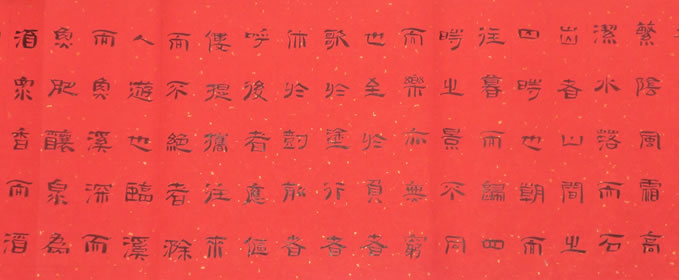 繁陰風霜高
潔水落而石
出者山間之
四時也朝而
往暮而歸四
時之景不同
而樂亦無窮
也至於負者
歌於塗行者
休於樹前者
呼後者應傴
僂提攜往來
而不絕者滁
人遊也臨溪
而魚溪深而
魚肥釀泉為
酒泉香而酒